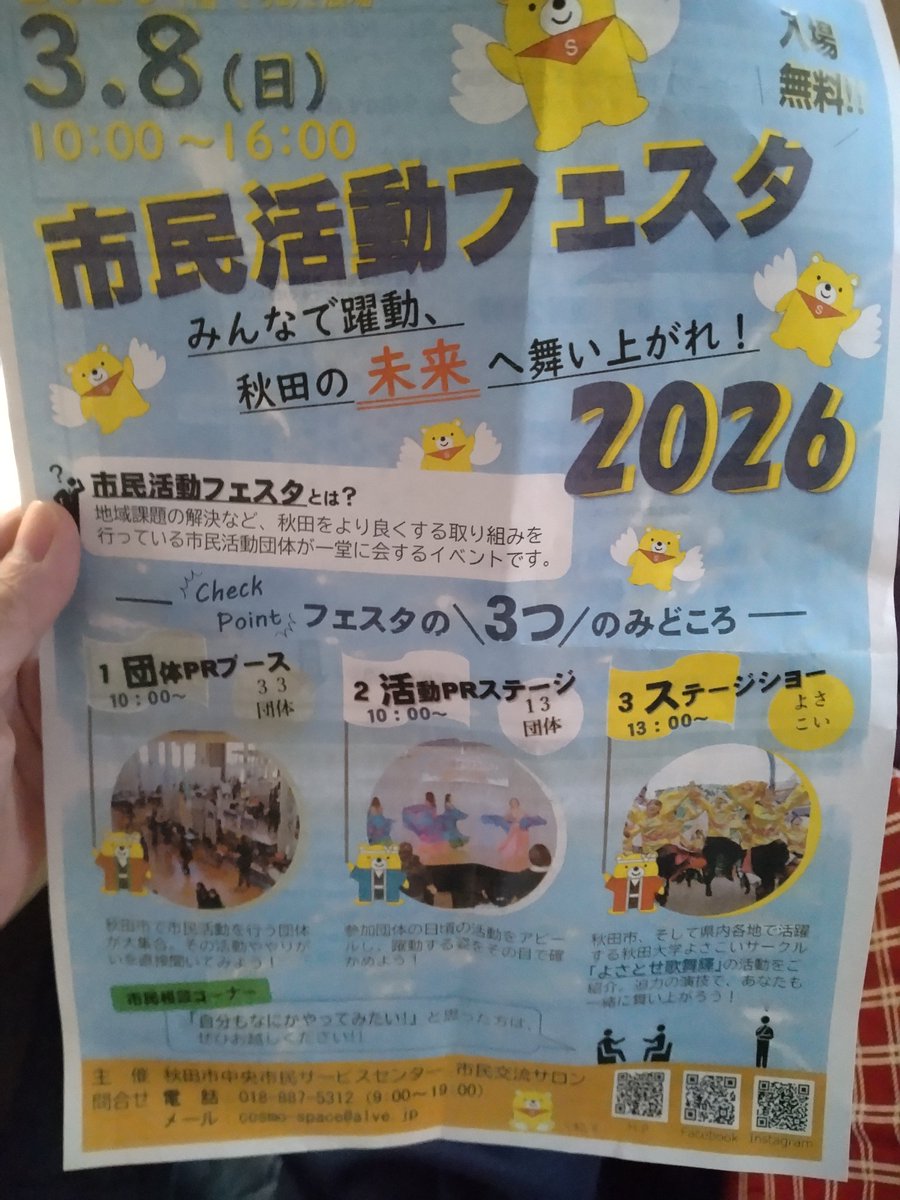 3.8(日)
10:00~16:00
入場
無料!!
市民活動フェスタ
みんなで躍動、
秋田の未来へ舞い上がれ!
2026
市民活動フェスタとは?
地域課題の解決など、秋田をより良くする取り組みを
行っている市民活動団体が一堂に会するイベントです。
Check
Point
フェスタの\3つ/のみどころ
1 団体PRブース
10:00~
33
団体
秋田市で市民活動を行う団体
が大集合。その活動ややりが
いを直接聞いてみよう!
2 活動PRステージ
10:00~
13
団体
参加団体の日頃の活動をアピー
ルし、躍動する姿をその目で確
かめよう!
3 ステージショー
13:00~
よさ
こい
秋田市、そして県内各地で活躍
する秋田大学よさこいサークル
「よさとせ歌舞輝」の活動をご
紹介。迫力の演技で、あなたも
一緒に舞い上がろう!
市民相談コーナー
「自分もなにかやってみたい!」と思った方は、
ぜひお越しください!!
主 催 秋田市中央市民サービスセンター 市民交流サロン
問合せ 電 話 018-887-5312 (9:00~19:00)
メール cosmo-space@alve.jp
H.P.
Facebook
Instagram